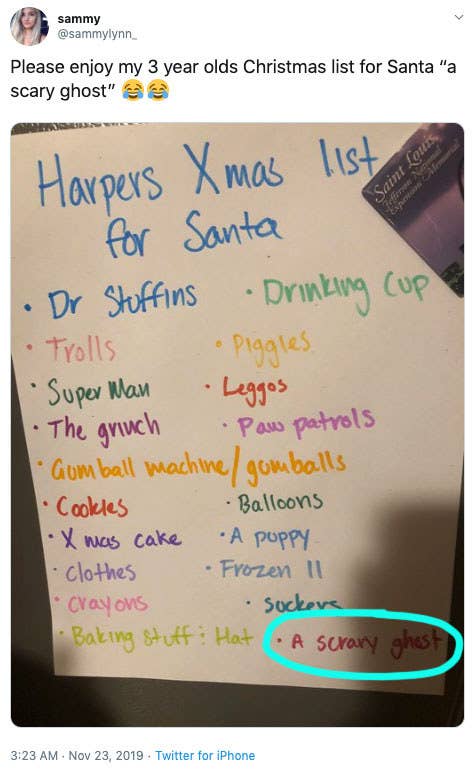 sammy
@sammylynn_
Please enjoy my 3 year olds Christmas list for Santa “a
scary ghost” 😂😂
Harpers Xmas list
for Santa
Saint Louis
Jefferson National
Expansion Memorial
• Dr Stuffins
• Drinking Cup
• Trolls
• Piggles
• Super Man
• Leggos
• The grinch
• Paw patrols
• Gumball machine/gumballs
• Cookies
• Balloons
• X mas cake
• A puppy
• Clothes
• Frozen II
• Crayons
• Suckers
• Baking stuff : Hat
• A scrary ghost
3:23 AM · Nov 23, 2019 · Twitter for iPhone